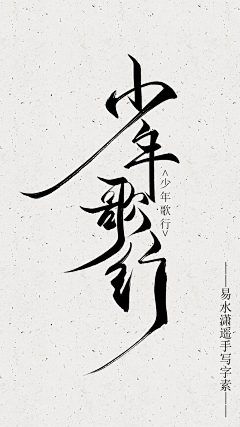 少年歌行
<少年歌行>
——易水潇遥手写字素——